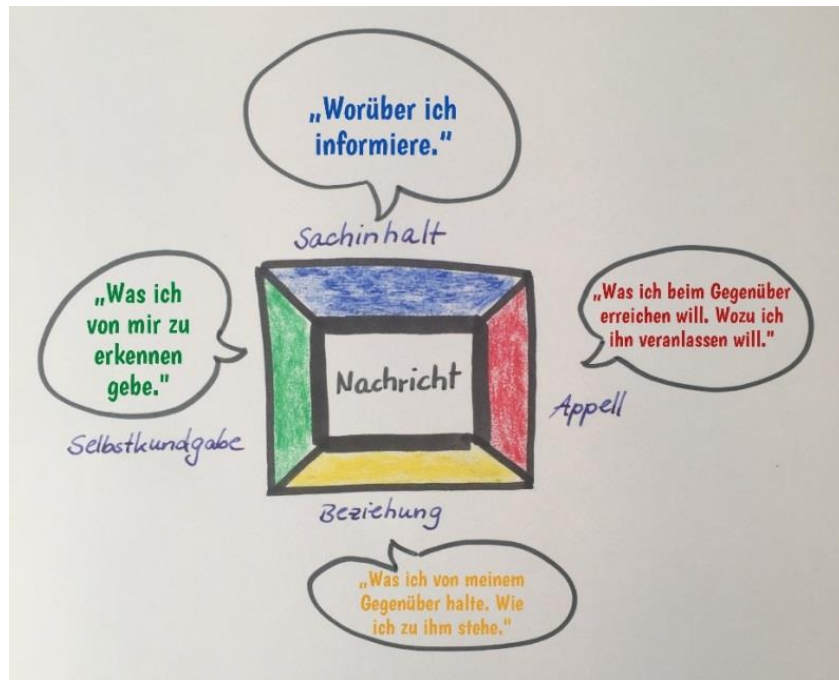 „Worüber ich
informiere."
Sachinhalt
„Was ich
von mir zu
erkennen
gebe."
Selbstkundgabe
Nachricht
„Was ich beim Gegenüber
erreichen will. Wozu ich
ihn veranlassen will."
Appell
Beziehung
„Was ich von meinem
Gegenüber halte. Wie
ich zu ihm stehe."